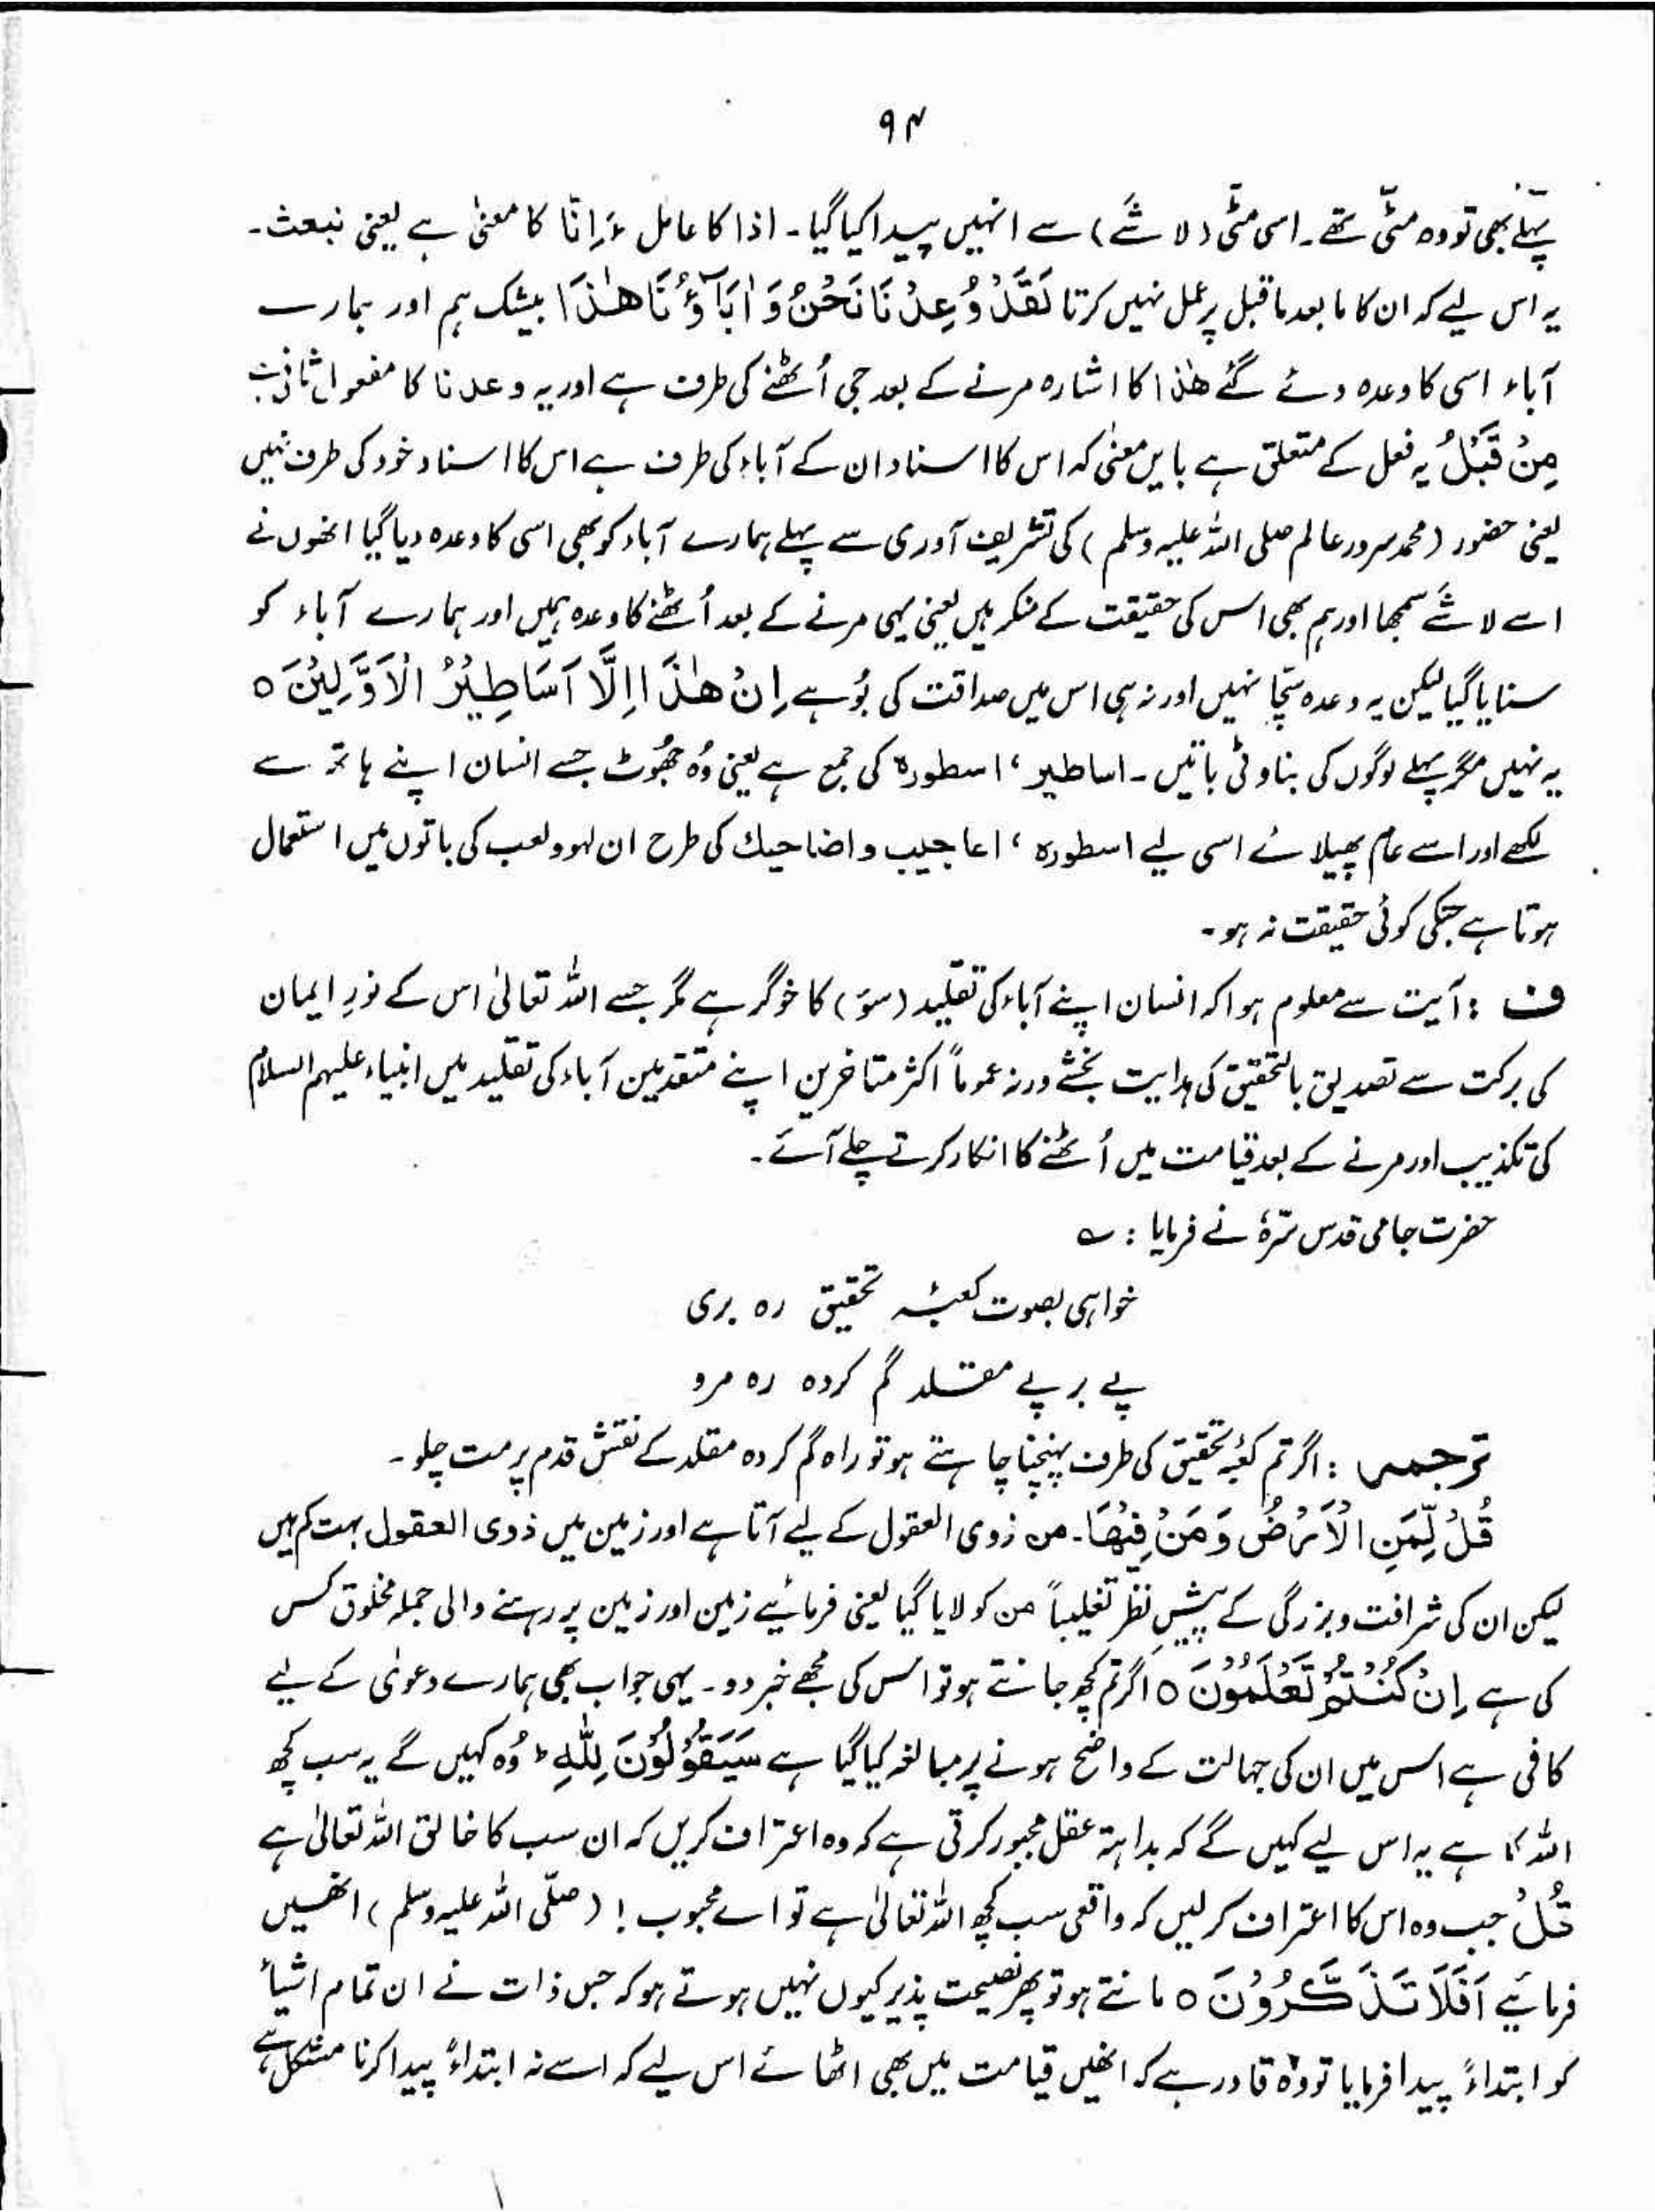 ۹۴
پہلے بھی تو وہ مٹی تھے۔ اسی مٹی (لاشے) سے انہیں پیدا کیا گیا۔ اذا کا عامل ءَاِنَّا کا معنیٰ ہے یعنی نبعث۔
یہ اس لیے کہ ان کا ما بعد ما قبل پر عمل نہیں کرتا لَقَدْ وُعِدْنَا نَحْنُ وَ اٰبَآؤُنَا هٰذَا بیشک ہم اور ہمارے
آباء اسی کا وعدہ دئے گئے هٰذا کا اشارہ مرنے کے بعد جی اُٹھنے کی طرف ہے اور یہ وعدنا کا مفعول ثانی ہے
مِنْ قَبْلُ یہ فعل کے متعلق ہے بایں معنٰی کہ اس کا اسناد ان کے آباء کی طرف ہے اس کا اسناد خود کی طرف نہیں
یعنی حضور (محمد سرور عالم صلی اللہ علیہ وسلم) کی تشریف آوری سے پہلے ہمارے آباء کو بھی اسی کا وعدہ دیا گیا انھوں نے
اسے لاشے سمجھا اور ہم بھی اس کی حقیقت کے منکر ہیں یعنی یہی مرنے کے بعد اُٹھنے کا وعدہ ہمیں اور ہمارے آباء کو
سنایا گیا لیکن یہ وعدہ سچّا نہیں اور نہ ہی اس میں صداقت کی بُو ہے اِنْ هٰذَا اِلَّا اَسَاطِیْرُ الْاَوَّلِیْنَ ۝
یہ نہیں مگر پہلے لوگوں کی بناوٹی باتیں۔ اساطیر ، اسطورۃ کی جمع ہے یعنی وُہ جھُوٹ جسے انسان اپنے ہاتھ سے
لکھے اور اسے عام پھیلائے اسی لیے اسطورہ ، اعاجیب و اضاحیك کی طرح ان لہو و لعب کی باتوں میں استعمال
ہوتا ہے جسکی کوئی حقیقت نہ ہو۔
ف : آیت سے معلوم ہوا کہ انسان اپنے آباء کی تقلید (سوٗ) کا خوگر ہے مگر جسے اللہ تعالیٰ اس کے نورِ ایمان
کی برکت سے تصدیق بالتحقیق کی ہدایت بخشے ورنہ عموماً اکثر متاخرین اپنے متقدمین آباء کی تقلید میں انبیاء علیہم السلام
کی تکذیب اور مرنے کے بعد قیامت میں اُٹھنے کا انکار کرتے چلے آئے۔
حضرت جامی قدس سرّہٗ نے فرمایا : ؎
خواہی بصوت کعبۂ تحقیق رہ بری
پے بر پے مقلد گم کردہ رہ مرو
ترجمہ : اگر تم کعبۂ تحقیق کی طرف پہنچنا چاہتے ہو تو راہ گم کردہ مقلد کے نقش قدم پر مت چلو۔
قُلْ لِّمَنِ الْاَرْضُ وَمَنْ فِیْهَا۔ من ذوی العقول کے لیے آتا ہے اور زمین میں ذوی العقول بہت کم ہیں
لیکن ان کی شرافت و بزرگی کے پیشِ نظر تغلیباً من کو لایا گیا یعنی فرمائیے زمین اور زمین پر رہنے والی جملہ مخلوق کس
کی ہے اِنْ كُنْتُمْ تَعْلَمُوْنَ ۝ اگر تم کچھ جانتے ہو تو اس کی مجھے خبر دو۔ یہی جواب بھی ہمارے دعویٰ کے لیے
کافی ہے اس میں ان کی جہالت کے واضح ہونے پر مبالغہ کیا گیا ہے سَیَقُوْلُوْنَ لِلّٰهِ ؕ وُہ کہیں گے یہ سب کچھ
اللہ کا ہے یہ اس لیے کہیں گے کہ بداہتہ عقل مجبور کرتی ہے کہ وہ اعتراف کریں کہ ان سب کا خالق اللہ تعالیٰ ہے
قُلْ جب وہ اس کا اعتراف کر لیں کہ واقعی سب کچھ اللہ تعالیٰ ہے تو اے محبوب ! (صلّی اللہ علیہ وسلم) انھیں
فرمائیے اَفَلَا تَذَكَّرُوْنَ ۝ مانتے ہو تو پھر نصیحت پذیر کیوں نہیں ہوتے ہو کہ جس ذات نے ان تمام اشیأ
کو ابتداءً پیدا فرمایا تو وُہ قادر ہے کہ انھیں قیامت میں بھی اٹھائے اس لیے کہ اسے نہ ابتداءً پیدا کرنا مشکل ہے